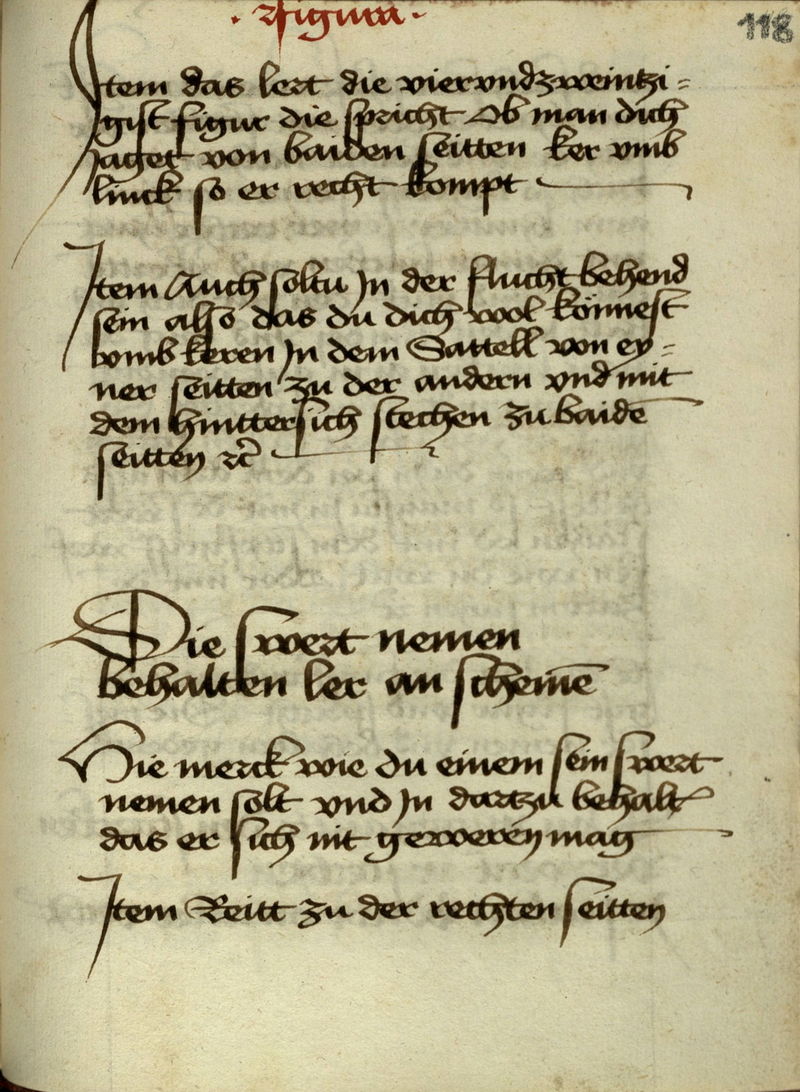 · Figura · 118
Item das lert die viervndzweintzi=
gist figur die spricht Ob man dich
Jaget von baiden seitten ker vmb
linck so er recht kompt
Item Auch soltu Jn der flucht behend
sein also das du dich wol könnest
vmb keren Jn dem Sattell von ey=
ner seitten zu der andern vnd mit
dem hinttersich stechen zu baidē
seitten ⁊c̄
Die swert nemen
behalten ler an schemē
Hie merck wie du einem sein swert
nemen solt vnd Jn dartzu behalt
das er sich nit geweren mag
Item Reitt zu der rechten seitten